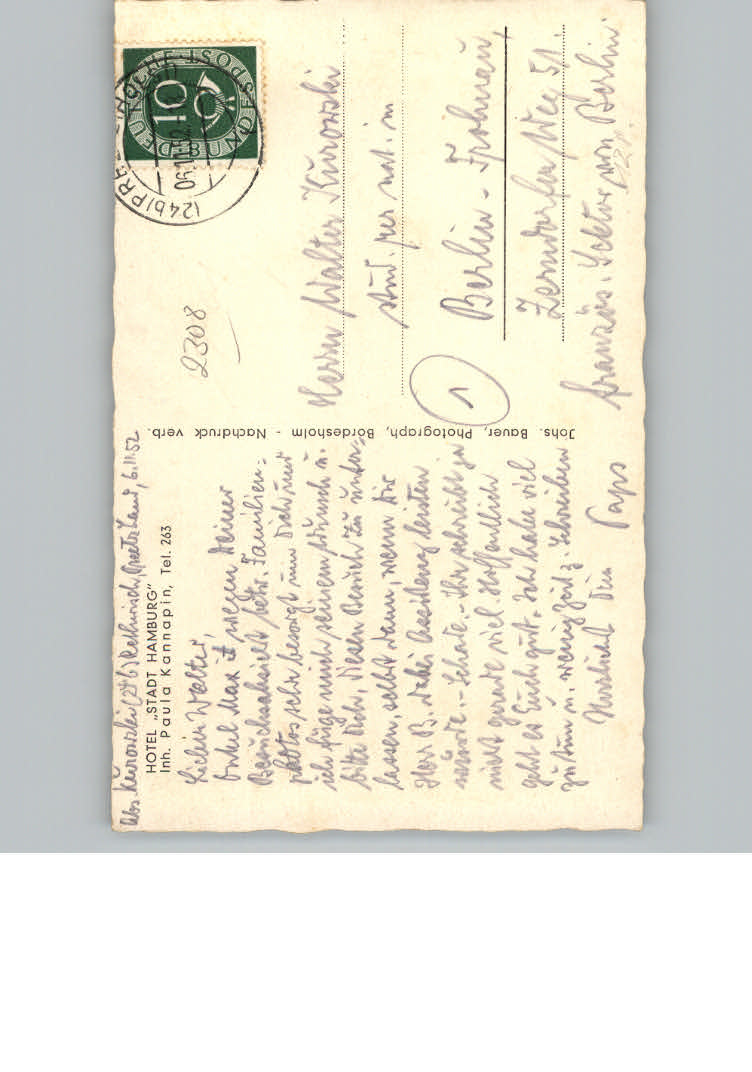 Abs. Kurowski (24b) Rethwisch, Preetz Land, 6.11.52
HOTEL „STADT HAMBURG"
Inh. Paula Kannapin, Tel. 263
Lieber Walter,
Onkel Max ist wegen Deiner
Besuchsabsicht betr. Familien=
photos sehr besorgt um Dich und
ich füge mich seinem Wunsch u.
bitte Dich, diesen Besuch zu unter=
lassen, selbst dann, wenn Dir
Herr B. dabei Assistenz leisten
würde. - Schade. - Ihr schreibt ja
nicht gerade viel. Hoffentlich
geht es Euch gut. Ich habe viel
zu tun u. wenig Zeit z. Schreiben
Herzlichst Dein Paps
Johs. Bauer, Photograph, Bordesholm - Nachdruck verb.
DEUTSCHE POST
BUNDESPOST
10
(24b) PREETZ
06.11.52
2308
Herrn Walter Kurowski
stud. rer. nat.
1
Berlin - Frohnau,
Zerndorfer Weg 51.
französ. Sektor von Berlin